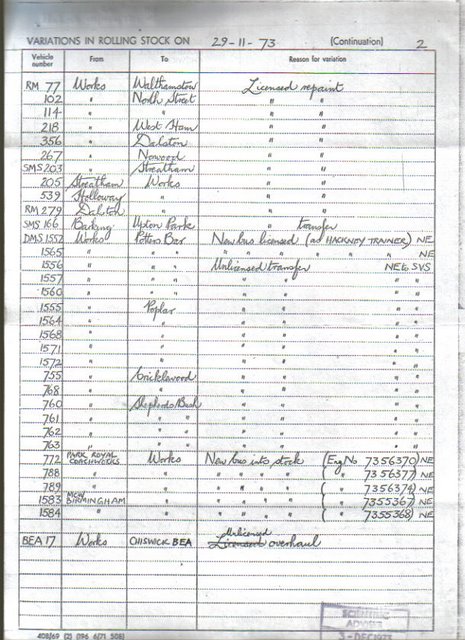 VARIATIONS IN ROLLING STOCK ON 29-11-73 (Continuation) 2
Vehicle number From To Reason for variation
RM 77 Works Walthamstow Licensed repaint
102 " North Street " "
114 " " " "
218 " West Ham " "
356 " Dalston " "
267 " Norwood " "
SMS 203 " Streatham " "
205 Streatham Works " "
539 Holloway " " "
RM 279 Dalston " " "
SMS 166 Barking Upton Park " transfer
DMS 1552 Works Potters Bar New bus licensed (ad HACKNEY TRAINER) NE
1565 " " " " " " " " " NE
1556 " " " Unlicensed transfer NE to SVS
1557 " " " " " " "
1560 " " " " " " "
1555 " Poplar " " " "
1564 " " " " " "
1568 " " " " " "
1571 " " " " " "
1572 " " " " " "
755 " Cricklewood " " " "
768 " " " " " "
760 " Shepherds Bush " " " "
761 " " " " " " "
762 " " " " " " "
763 " " " " " " "
772 PARK ROYAL COACHWORKS Works New bus into stock (Eng No 7356370) NE
788 " " " " " " ( " 7356377) NE
789 " " " " " " ( " 7356374) NE
1583 MCW BIRMINGHAM " " " " " ( " 7355367) NE
1584 " " " " " " ( " 7355368) NE
Unlicensed
BEA 17 Works CHISWICK BEA Licensed overhaul
SCIENTIFIC
ADVISER
DEC 1973
408/69 (2) (196 6/71 508)